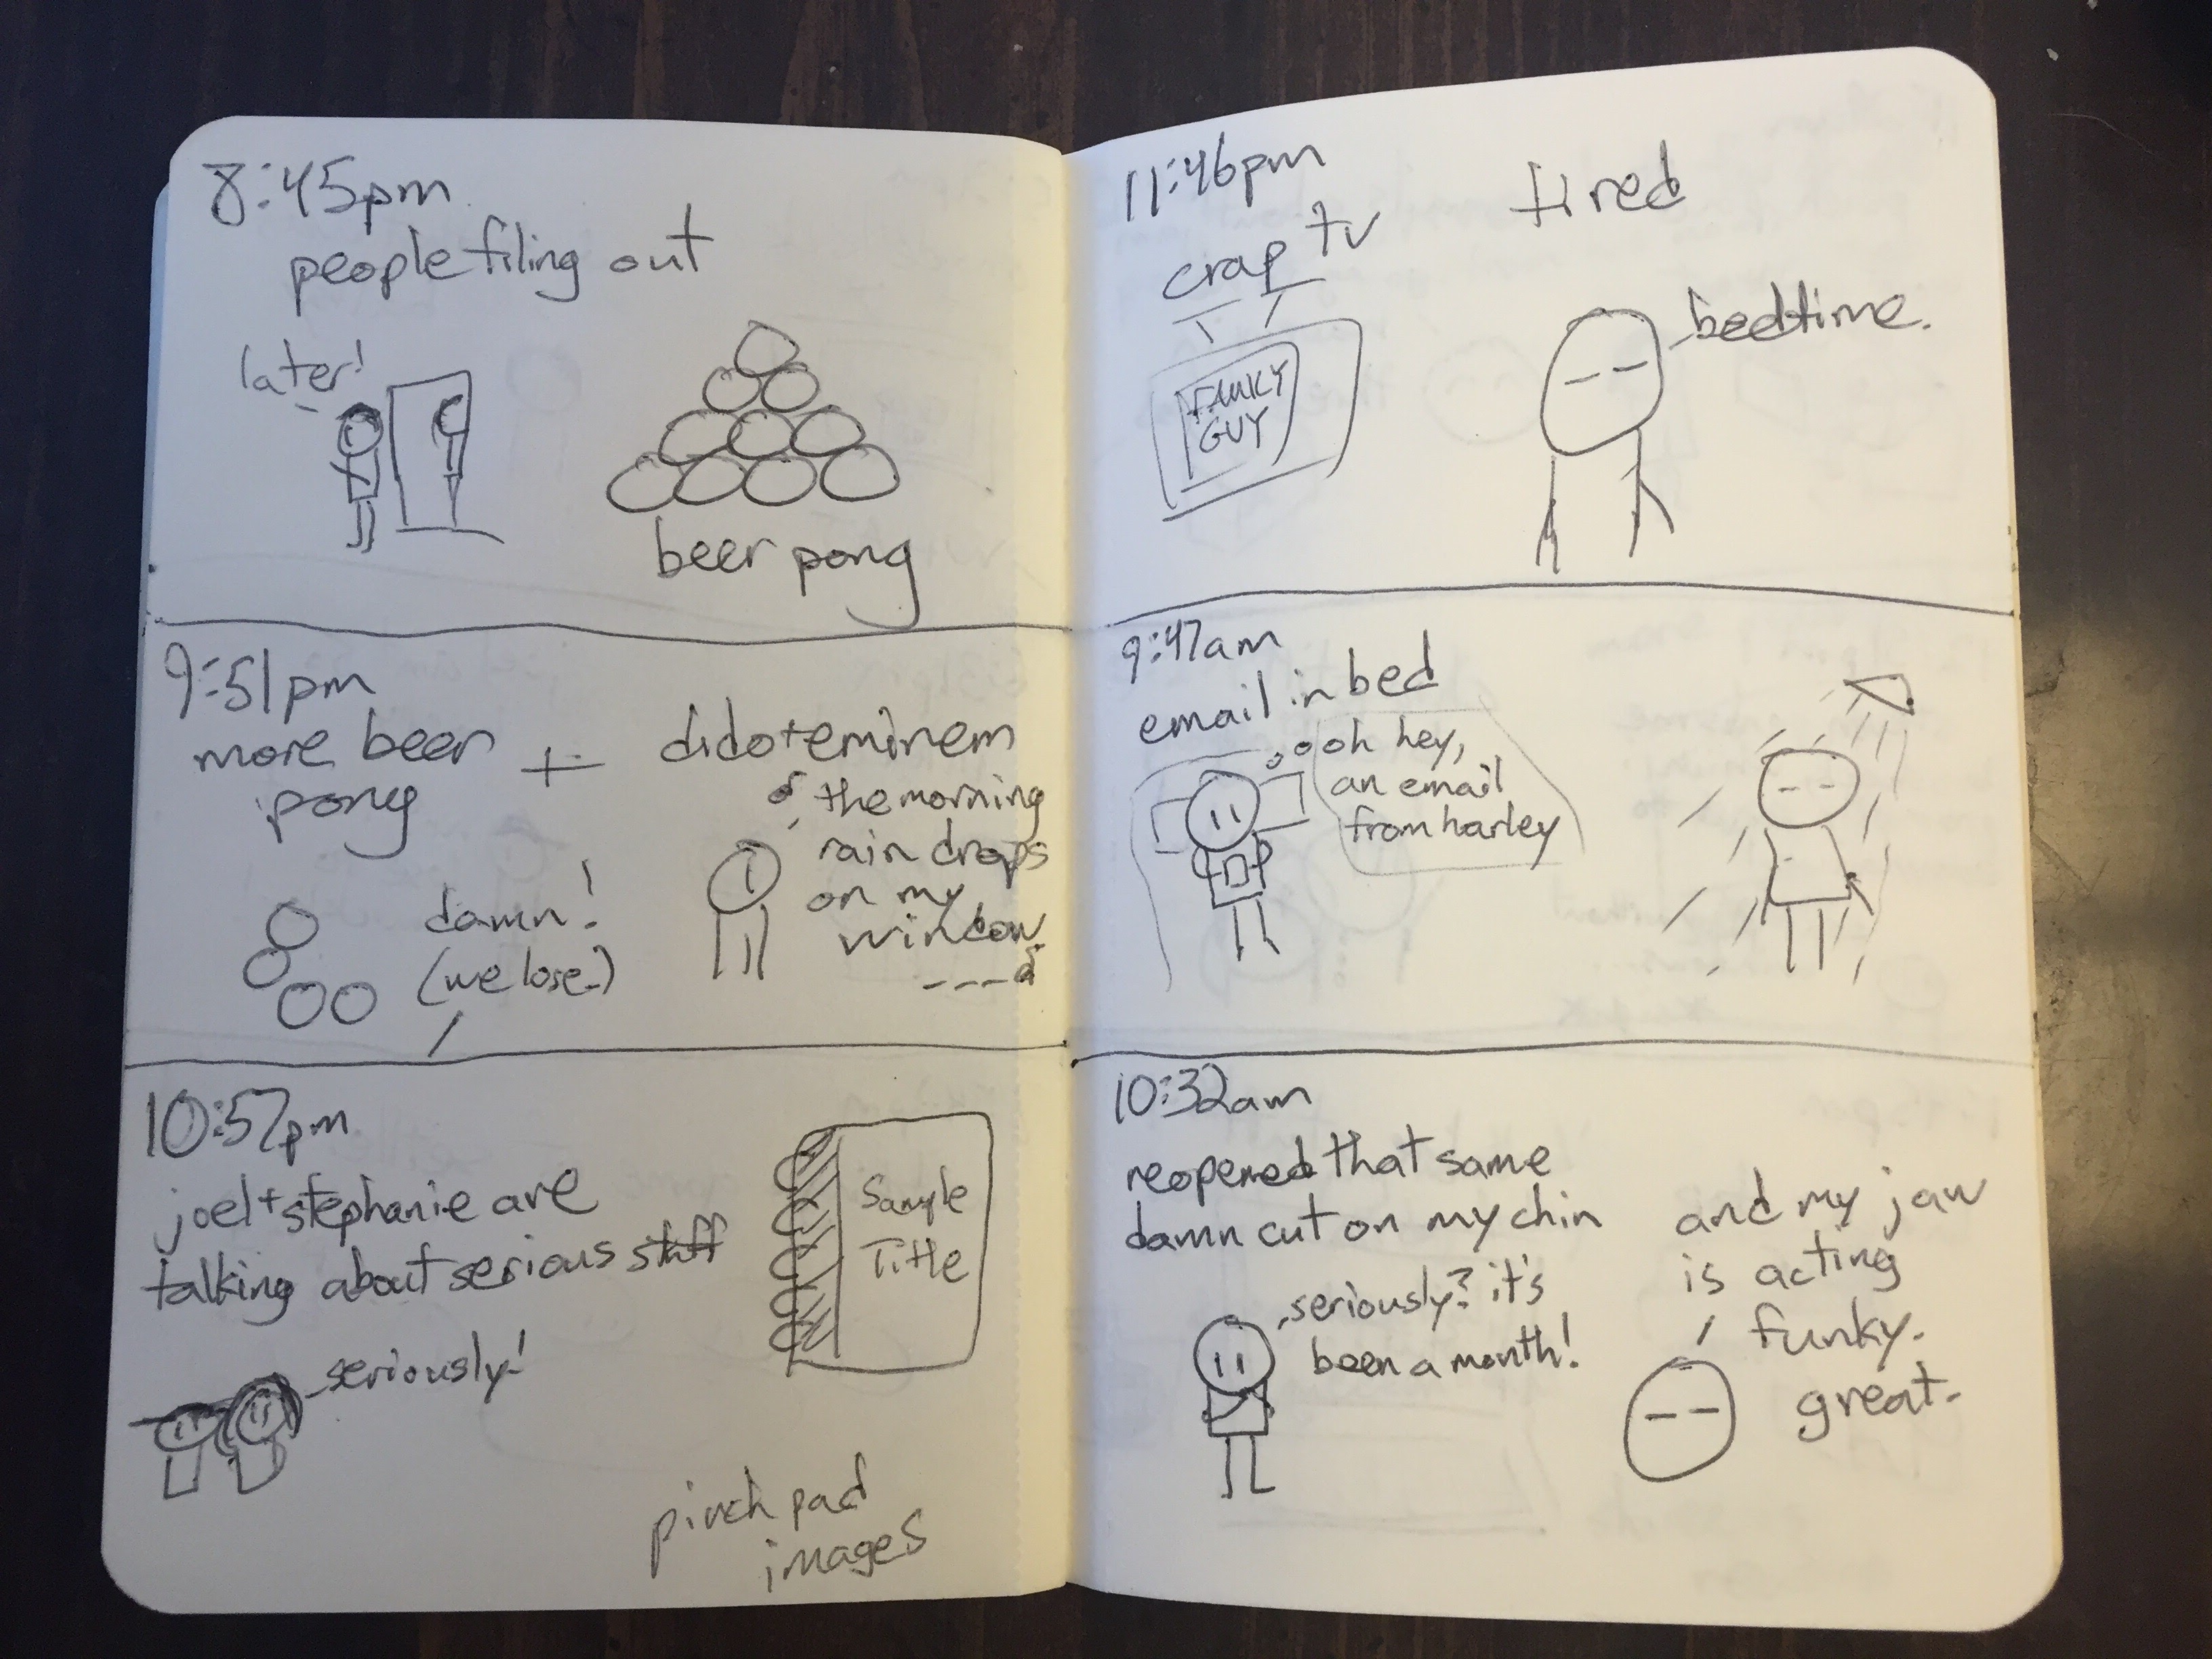 8:45pm
people filing out
later!
beer pong
9:51pm
more beer
pong
+
dido+eminem
the morning
rain drops
on my
window
damn!
(we lose.)
10:57pm
joel+stephanie are
talking about serious stuff
seriously!
Sample
Title
pinch pad
images
11:46pm
crap tv
FAMILY
GUY
tired
bedtime.
9:47am
email in bed
oh hey,
an email
from harley
10:32am
reopened that same
damn cut on my chin
seriously? it's
been a month!
and my jaw
is acting
funky.
great.